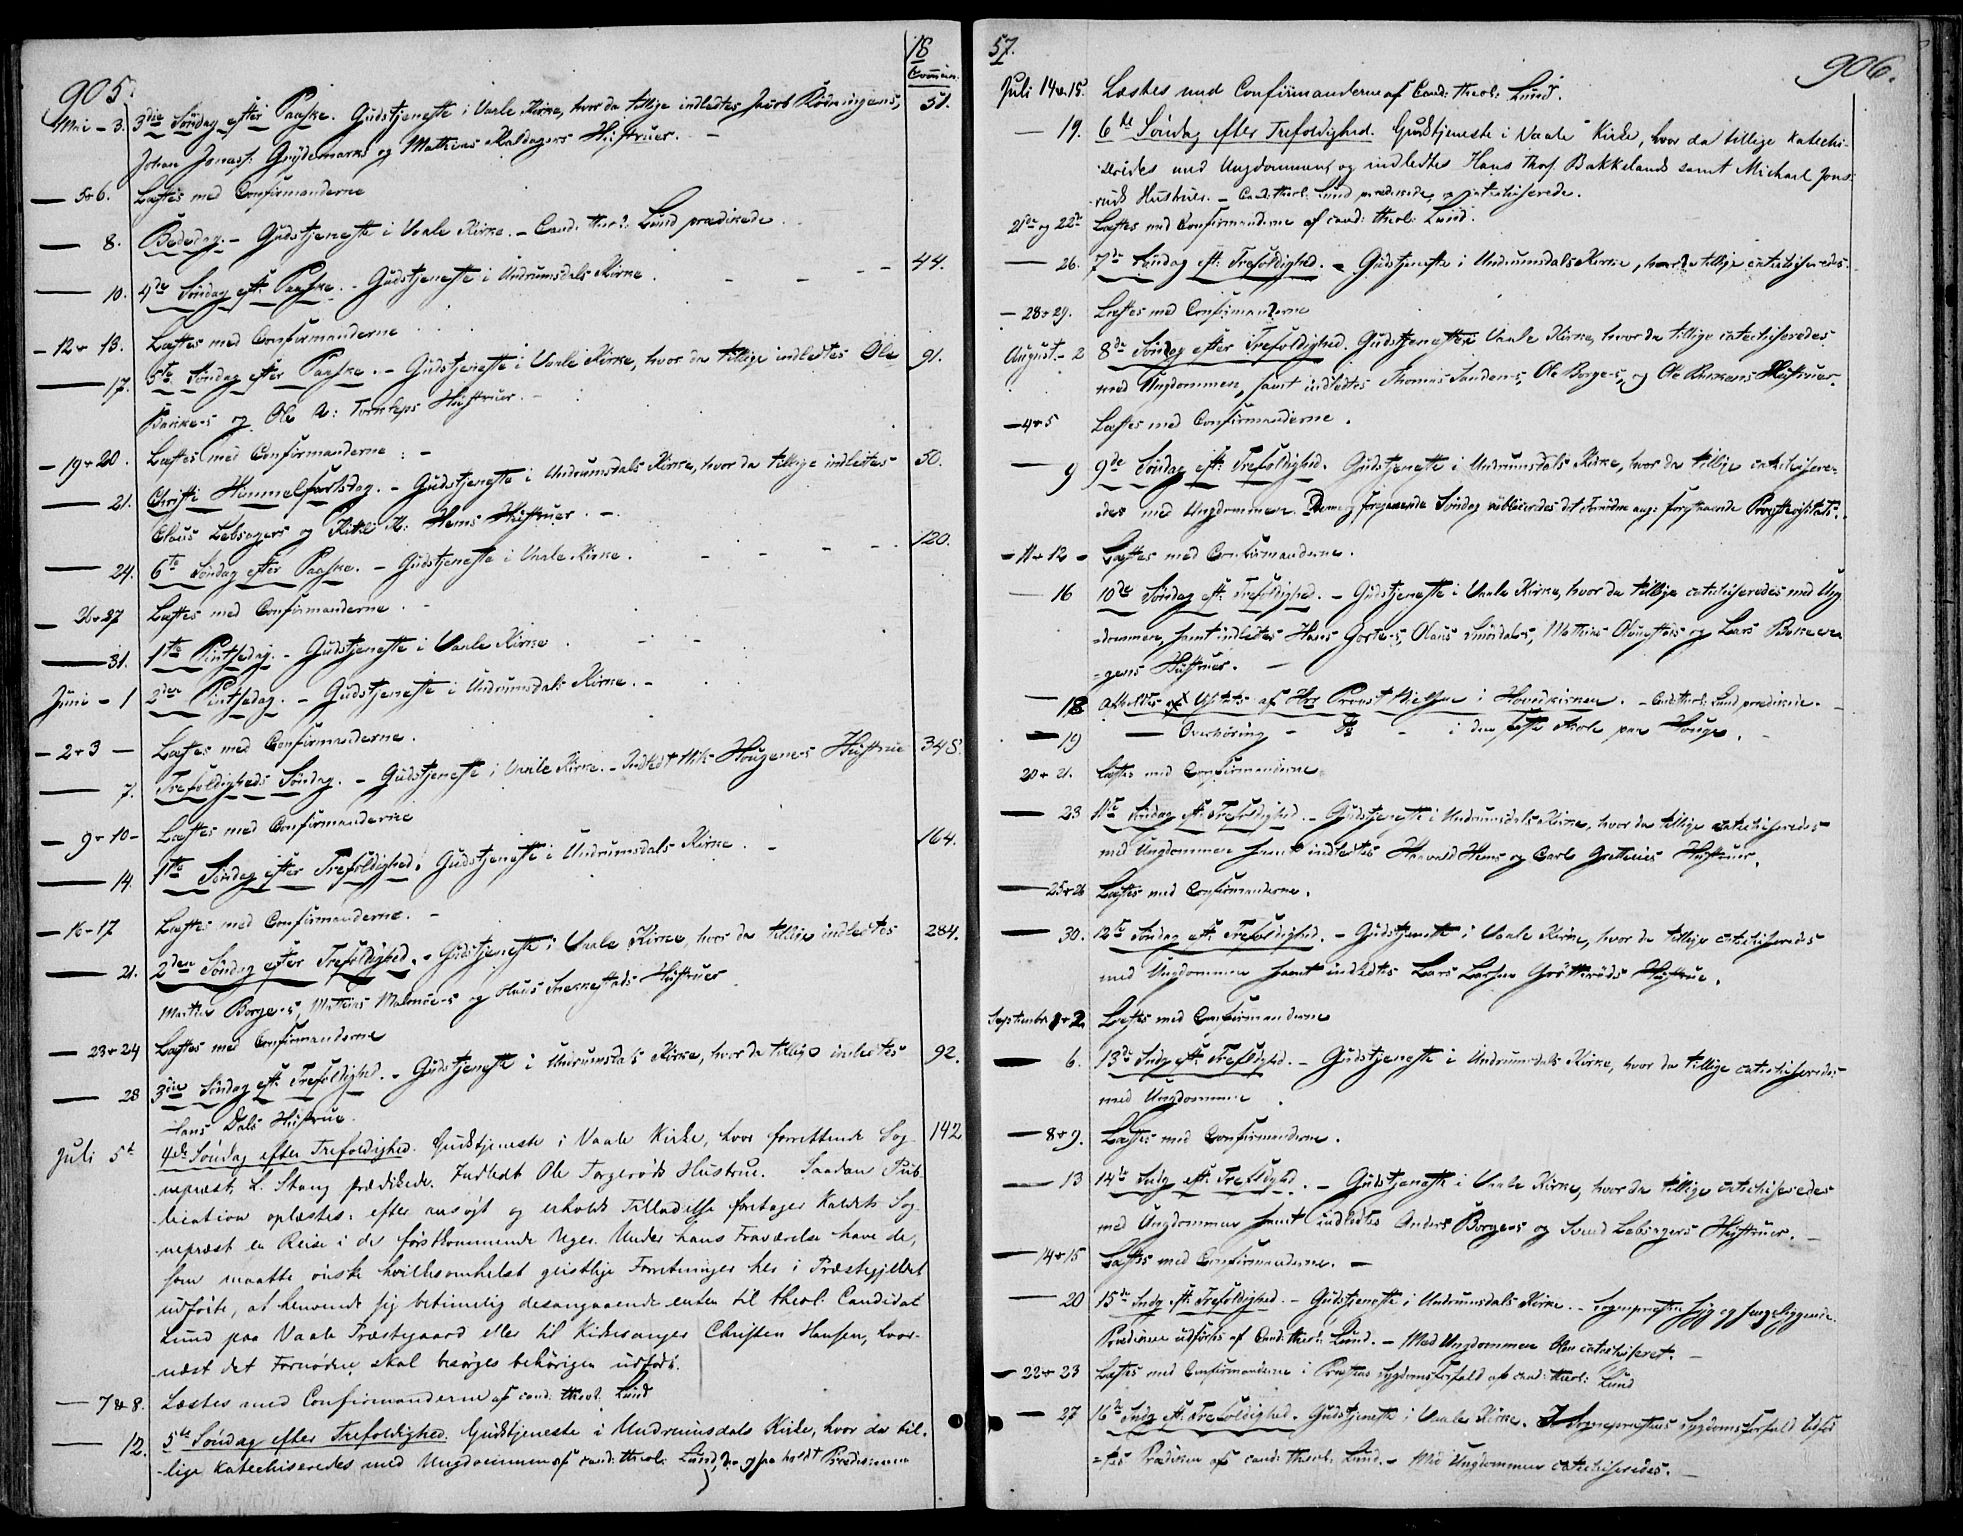 905.
18
Commun.
Mai - 3. 3die Søndag efter Paaske. Gudstjeneste i Vaale Kirke, hvor da tillige indledtes Jacob Rødningens, 51.
Johan Jonass: Grydemarks og Mathias Kaldagers Hustruer. -
— 5 & 6. Læstes med Confirmanderne
— 8. Bededag. - Gudstjeneste i Vaale Kirke. - Cand: theol: Lund prædikede
— 10. 4de Søndag eft: Paaske. - Gudstjeneste i Undrumsdals Kirke. - - - - 44.
- 12 & 13. Læstes med Confirmanderne
— 17. 5te Søndag efter Paaske. - Gudstjeneste i Vaale Kirke, hvor da tillige indledtes Ole 91.
Bakke-s og Ole A: Hustruer. -
- 19 & 20. Læstes med Confirmanderne. -
— 21. Christi Himmelfartsdag. - Gudstjeneste i Undrumsdals Kirke, hvor da tillige indledtes 50.
Claus Lebsagers og Kittil M: Hems Hustruer. -
— 24. 6te Søndag efter Paaske. - Gudstjeneste i Vaale Kirke. - - - - 120.
— 26 & 27 Læstes med Confirmanderne. -
— 31. 1ste Pintsedag. - Gudstjeneste i Vaale Kirke. - -
Juni - 1 2den Pintsedag. - Gudstjeneste i Undrumsdals Kirke. -
- 2 & 3 - Læstes med Confirmanderne.
— 7. Trefoldigheds Søndag. - Gudstjeneste i Vaale Kirke. - Indledt Nils Haugene-s Hustrue 348.
- 9 & 10 - Læstes med Confirmanderne
— 14. 1ste Søndag efter Trefoldighed. Gudstjeneste i Undrumsdals Kirke. - 164.
- 16 - 17 Læstes med Confirmanderne. -
— 21. 2den Søndag efter Trefoldighed. - Gudstjeneste i Vaale Kirke, hvor da tillige indledtes 284.
Martin Borge-s, Mathias Malmøe-s og Olaus Hustruer
— 23 & 24 Læstes med Confirmanderne
— 28 3die Søndag eft: Trefoldighed. - Gudstjeneste i Undrumsdals Kirke, hvor da tillige indledtes 92.
Hans Dals Hustrue.
Juli 5te 4de Søndag efter Trefoldighed. Gudstjeneste i Vaale Kirke, hvor forrettende Sog- 142
-nepræst L. Stang prædikede. Indledt Ole Torgerøds Hustrue. Saadan Pub-
-lication oplæstes: efter ansøgt og erholdt Tilladelse foretager Kaldets Sog-
-nepræst en Reise i de førstkommende Uger. Under hans Fraværelse have de,
som maatte ønske hvilkesomhelst geistlige Forretninger her i Præstegjeldet
udførte, at henvende sig betimelig desangaaende enten til theol: Candidat
Lund paa Vaale Præstegaard eller til Kirkesanger Christen Hansen, hvor-
-næst det Fornødne skal besørges behørigen udført.
— 7 & 8. Læstes med Confirmanderne af cand: theol: Lund
— 12. 5te Søndag efter Trefoldighed. Gudstjeneste i Undrumsdals Kirke, hvor da til-
-lige katechiseredes med Ungdommen af cand: theol: Lund, der ogsaa holdt Prædikenen
57.
906.
Juli 14 & 15. Læstes med Confirmanderne af Cand: theol: Lund.
— 19. 6te Søndag efter Trefoldighed. Gudstjeneste i Vaale Kirke, hvor da tillige katechi-
-seredes med Ungdommen, og indledtes Hans Thos. Bakkelands samt Michael Jons-
-ruds Hustruer. - Cand: theol: Lund prædikede og catechiserede.
21de og 22de Læstes med Confirmanderne af cand: theol: Lund.
— 26. 7de Søndag eft: Trefoldighed. - Gudstjeneste i Undrumsdals Kirke, hvor da tillige catechiseredes.
- 28 & 29. Læstes med Confirmanderne
August - 2 8de Søndag efter Trefoldighed. Gudstjeneste i Vaale Kirke, hvor da tillige catechiseredes
med Ungdommen, samt indledtes Thomas Sanden-s, Ole Borge-s, og Ole Hustruer.
- 4 & 5 Læstes med Confirmanderne.
— 9 9de Søndag eft: Trefoldighed. Gudstjeneste i Undrumsdals Kirke, hvor da tillige catechisere-
-des med Ungdommen. Denne og foregaaende Søndag publiceredes det Fornødne ang: forestaaende Provstevisitats.
- 11 & 12 - Læstes med Confirmanderne.
— 16 10de Søndag eft: Trefoldighed. - Gudstjeneste i Vaale Kirke, hvor da tillige catechiseredes med Ung-
-dommen, samt indledtes Hans Gorte-s, Olaus Mathias og Lars
-gens Hustruer. -
— 18 Afholdtes Visitats af Hrr Provst Nielsen i Hovedkirken. - Cand: theol: Lund prædikede. -
— 19 — Overhøring - Do - i den faste Skole paa Houge. -
20 & 21. Læstes med Confirmanderne.
— 23 11te Søndag eft: Trefoldighed. - Gudstjeneste i Undrumsdals Kirke, hvor da tillige catechiseredes
med Ungdommen samt indledtes Haavald Hems og Carl Hustruer.
— 25 & 26 Læstes med Confirmanderne.
— 30. 12te Søndag eft: Trefoldighed. - Gudstjeneste i Vaale Kirke, hvor da tillige catechiseredes
med Ungdommen samt indledtes Lars Larsen Grøtterøds Hustrue.
Septembr 1 & 2. Læstes med Confirmanderne
— 6. 13de Sndg eft: Trefoldighd. - Gudstjeneste i Undrumsdals Kirke, hvor da tillige catechiseredes
med Ungdommen.
— 8 & 9. Læstes med Confirmanderne.
— 13 14de Sndg eft: Trefoldighd. - Gudstjeneste i Vaale Kirke, hvor da tillige catechiseredes
med Ungdommen samt indledtes Anders Borge-s og Svend Lebsagers Hustruer. -
— 14 & 15 Læstes med Confirmanderne. -
— 20 15de Sndg eft: Trefoldighed. - Gudstjeneste i Undrumsdals Kirke. - Sognepræsten syg og sengeliggende.
Prædiken udførtes af Cand: theol: Lund. - Med Ungdommen blev catechiseret. -
- 22 & 23 Læstes med Confirmanderne i Præstens Sygdomsforfald af cand: theol: Lund
— 27 16de Sndg eft: Trefoldighed. Gudstjeneste i Vaale Kirke. I Sognepræstens Sygdomsforfald udførd-
-tes Prædiken af cand: theol: Lund. - Med Ungdommen catechiseredes. -